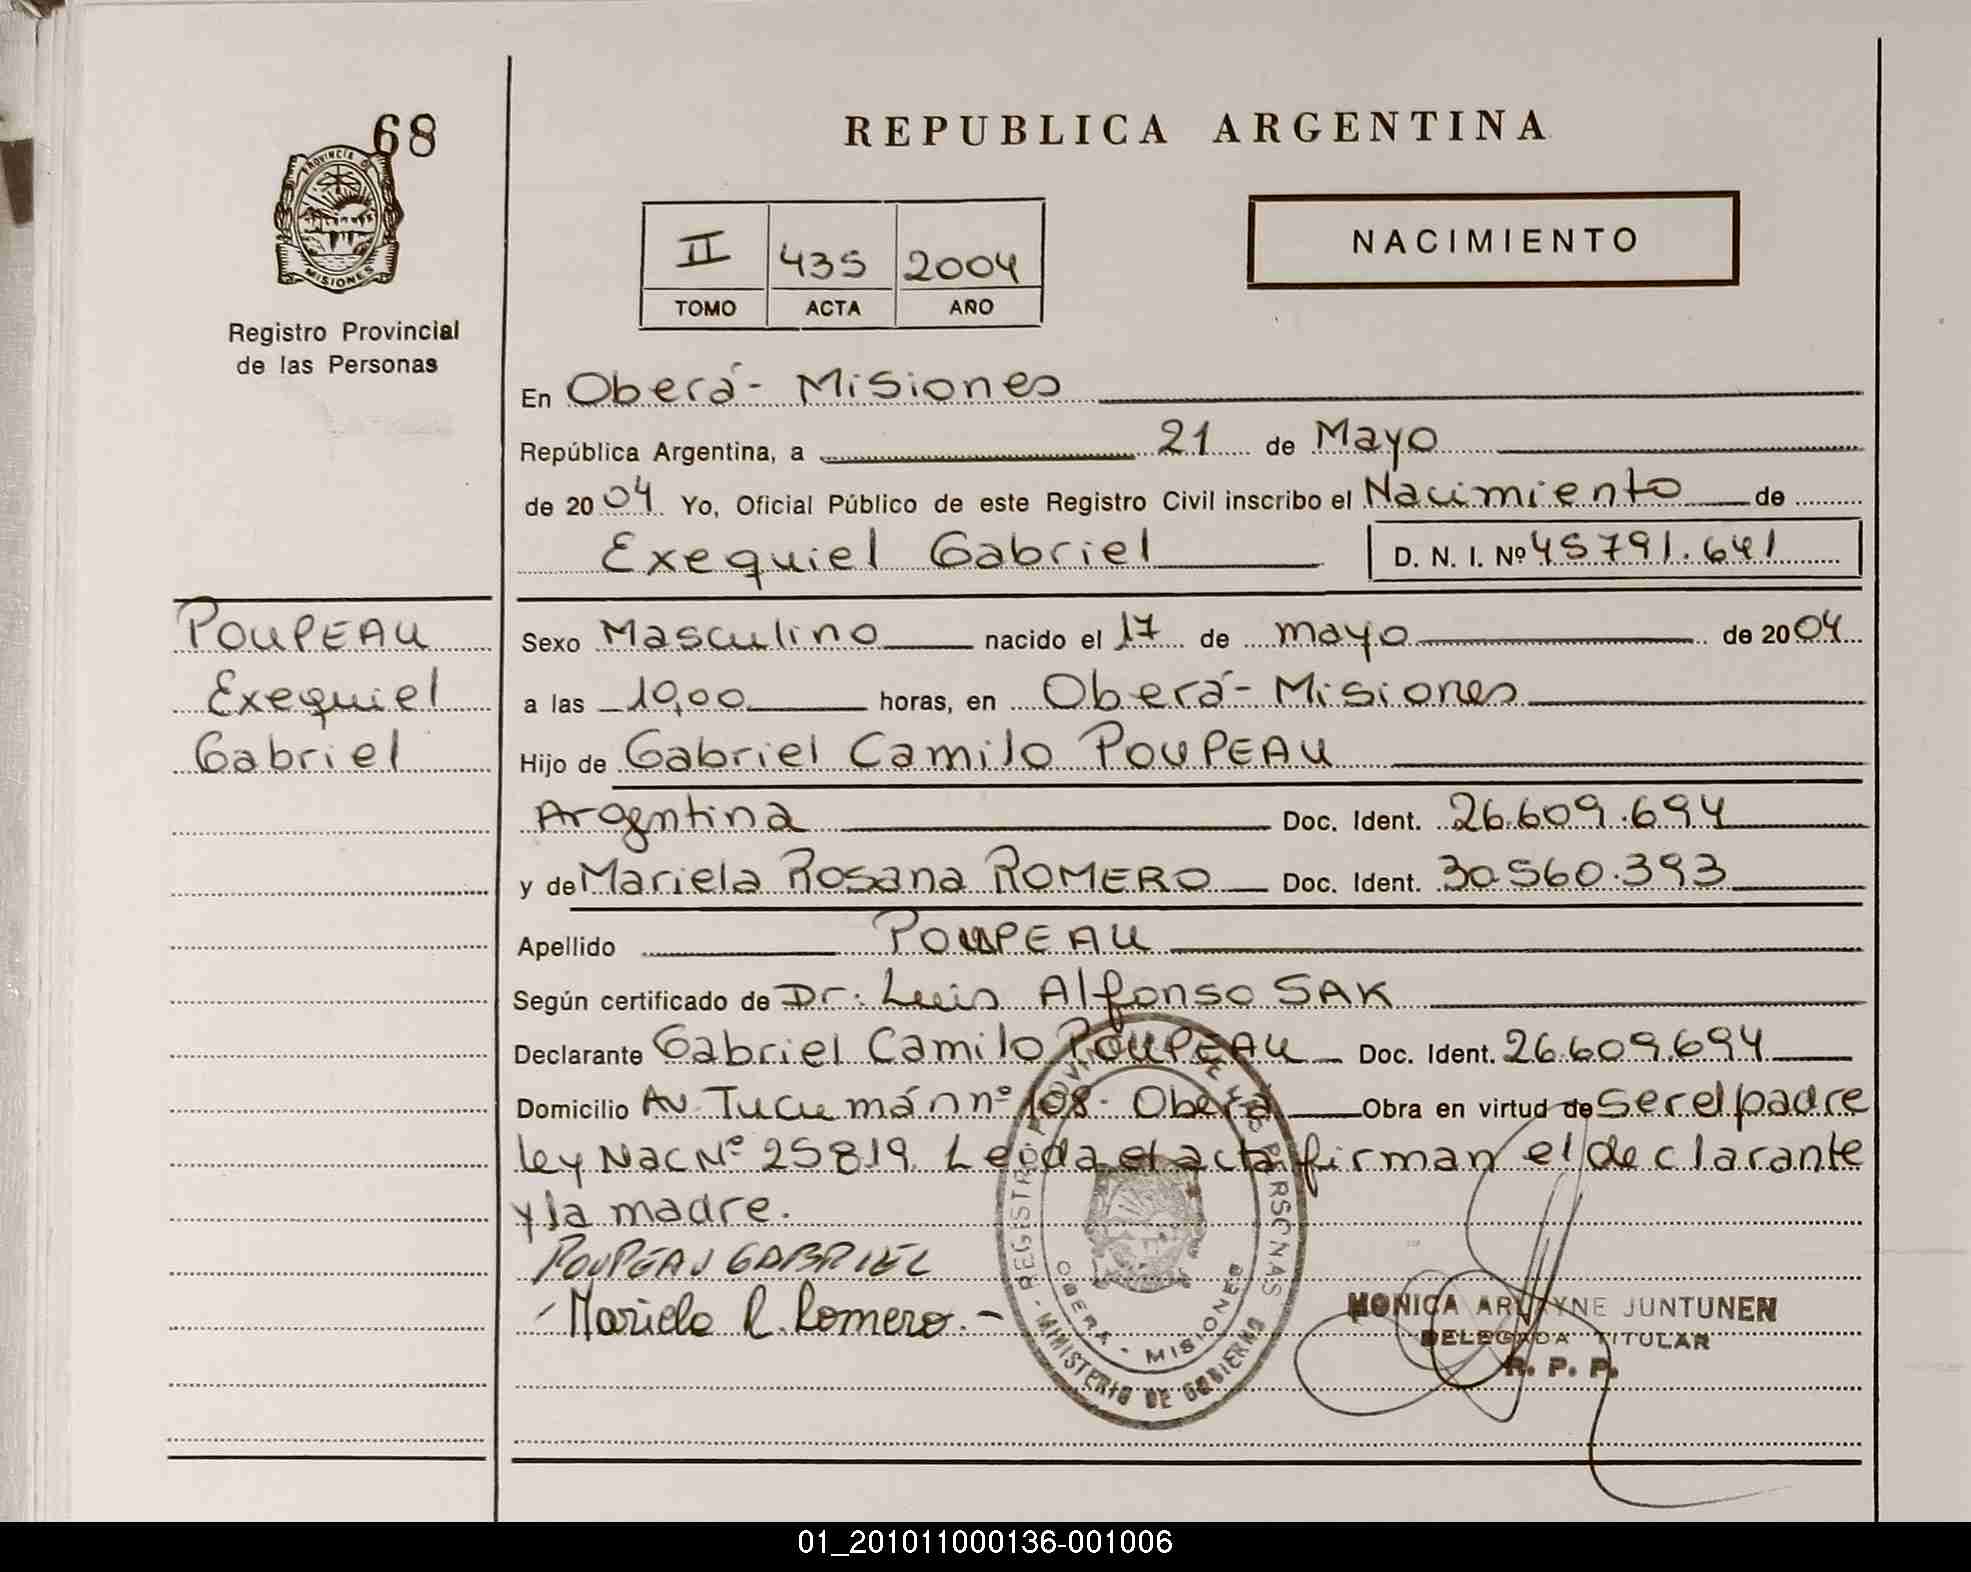 68
PROVINCIA DE
MISIONES
Registro Provincial
de las Personas
REPUBLICA ARGENTINA
NACIMIENTO
II 435 2004
TOMO ACTA AÑO
En Oberá - Misiones
República Argentina, a 21 de Mayo
de 2004 Yo, Oficial Público de este Registro Civil inscribo el Nacimiento de
Exequiel Gabriel D. N. I. Nº 45791.641
POUPEAU
Exequiel
Gabriel
Sexo Masculino nacido el 17 de mayo de 2004
a las 10,00 horas, en Oberá - Misiones
Hijo de Gabriel Camilo POUPEAU
Argentina Doc. Ident. 26.609.694
y de Mariela Rosana ROMERO Doc. Ident. 30.560.393
Apellido POUPEAU
Según certificado de Dr. Luis Alfonso SAK
Declarante Gabriel Camilo POUPEAU Doc. Ident. 26.609.694
Domicilio Av. Tucumán nº 108 - Oberá Obra en virtud de ser el padre
ley Nac Nº 25819. Leida el acta firman el declarante
y la madre.
POUPEAU GABRIEL
Mariela R. Romero. -
REGISTRO PROVINCIAL DE LAS PERSONAS - MINISTERIO DE GOBIERNO
OBERA - MISIONES
MONICA ARLEYNE JUNTUNEN
DELEGADA TITULAR
R. P. P.
01_201011000136-001006